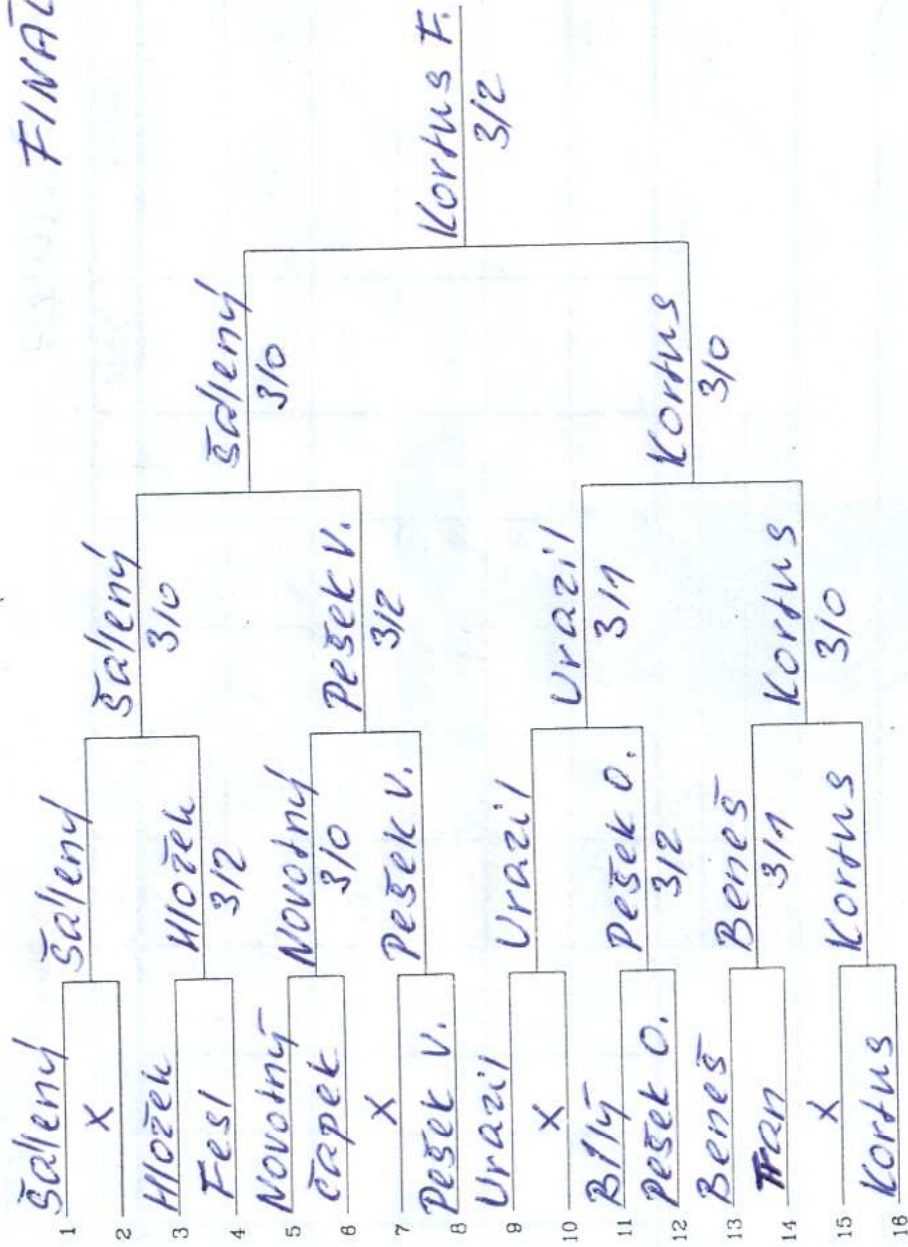 FINÁL
Šállený
1
X
2
Hložek
3
Fesl
4
Novotný
5
Čapek
6
X
7
Pešek V.
8
Urazil
9
X
10
Bílý
11
Pešek O.
12
Beneš
13
Tran
14
X
15
Kortus
16
Šállený
Hložek
3/2
Novotný
3/0
Pešek V.
Urazil
Pešek O.
3/2
Beneš
3/1
Kortus
Šállený
3/0
Pešek V.
3/2
Urazil
3/1
Kortus
3/0
Šállený
3/0
Kortus
3/0
Kortus F.
3/2